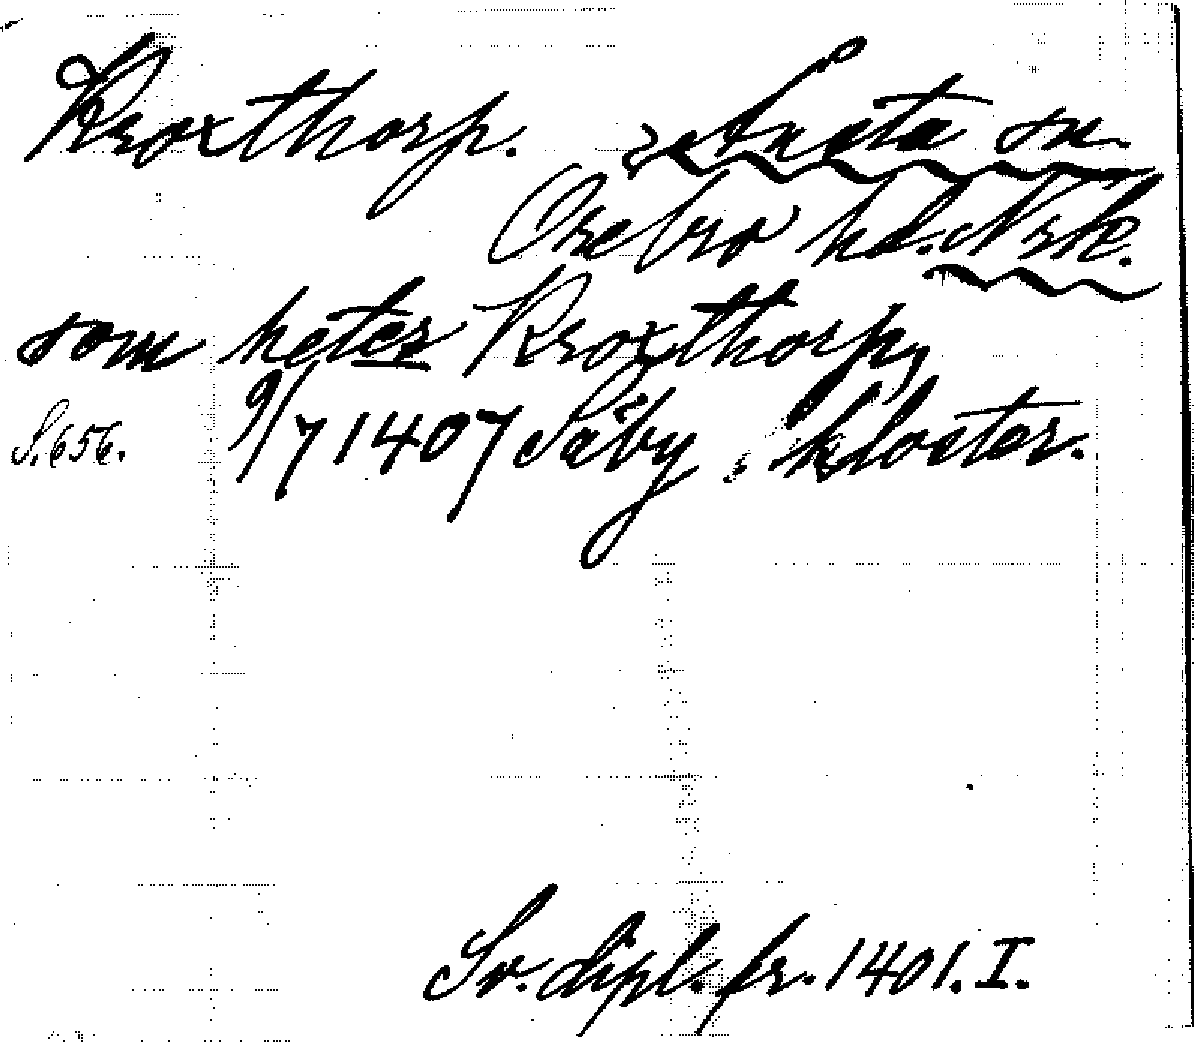 Kroxthorp. ? Ånsta sn
Örebro hd. Nrke.
som heter Kroxthorp,
S. 656. 9/7 1407 Säby kloster.
Sv. dipl. fr. 1401. I.